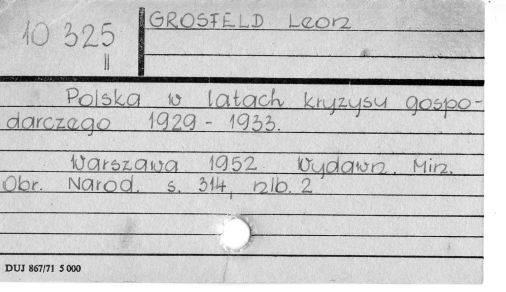 GROSFELD Leon
10 325
II
Polska w latach kryzysu gospo-
darczego 1929 - 1933.
Warszawa 1952 Wydawn. Min.
Obr. Narod. s. 314, nlb. 2
DUJ 867/71 5 000